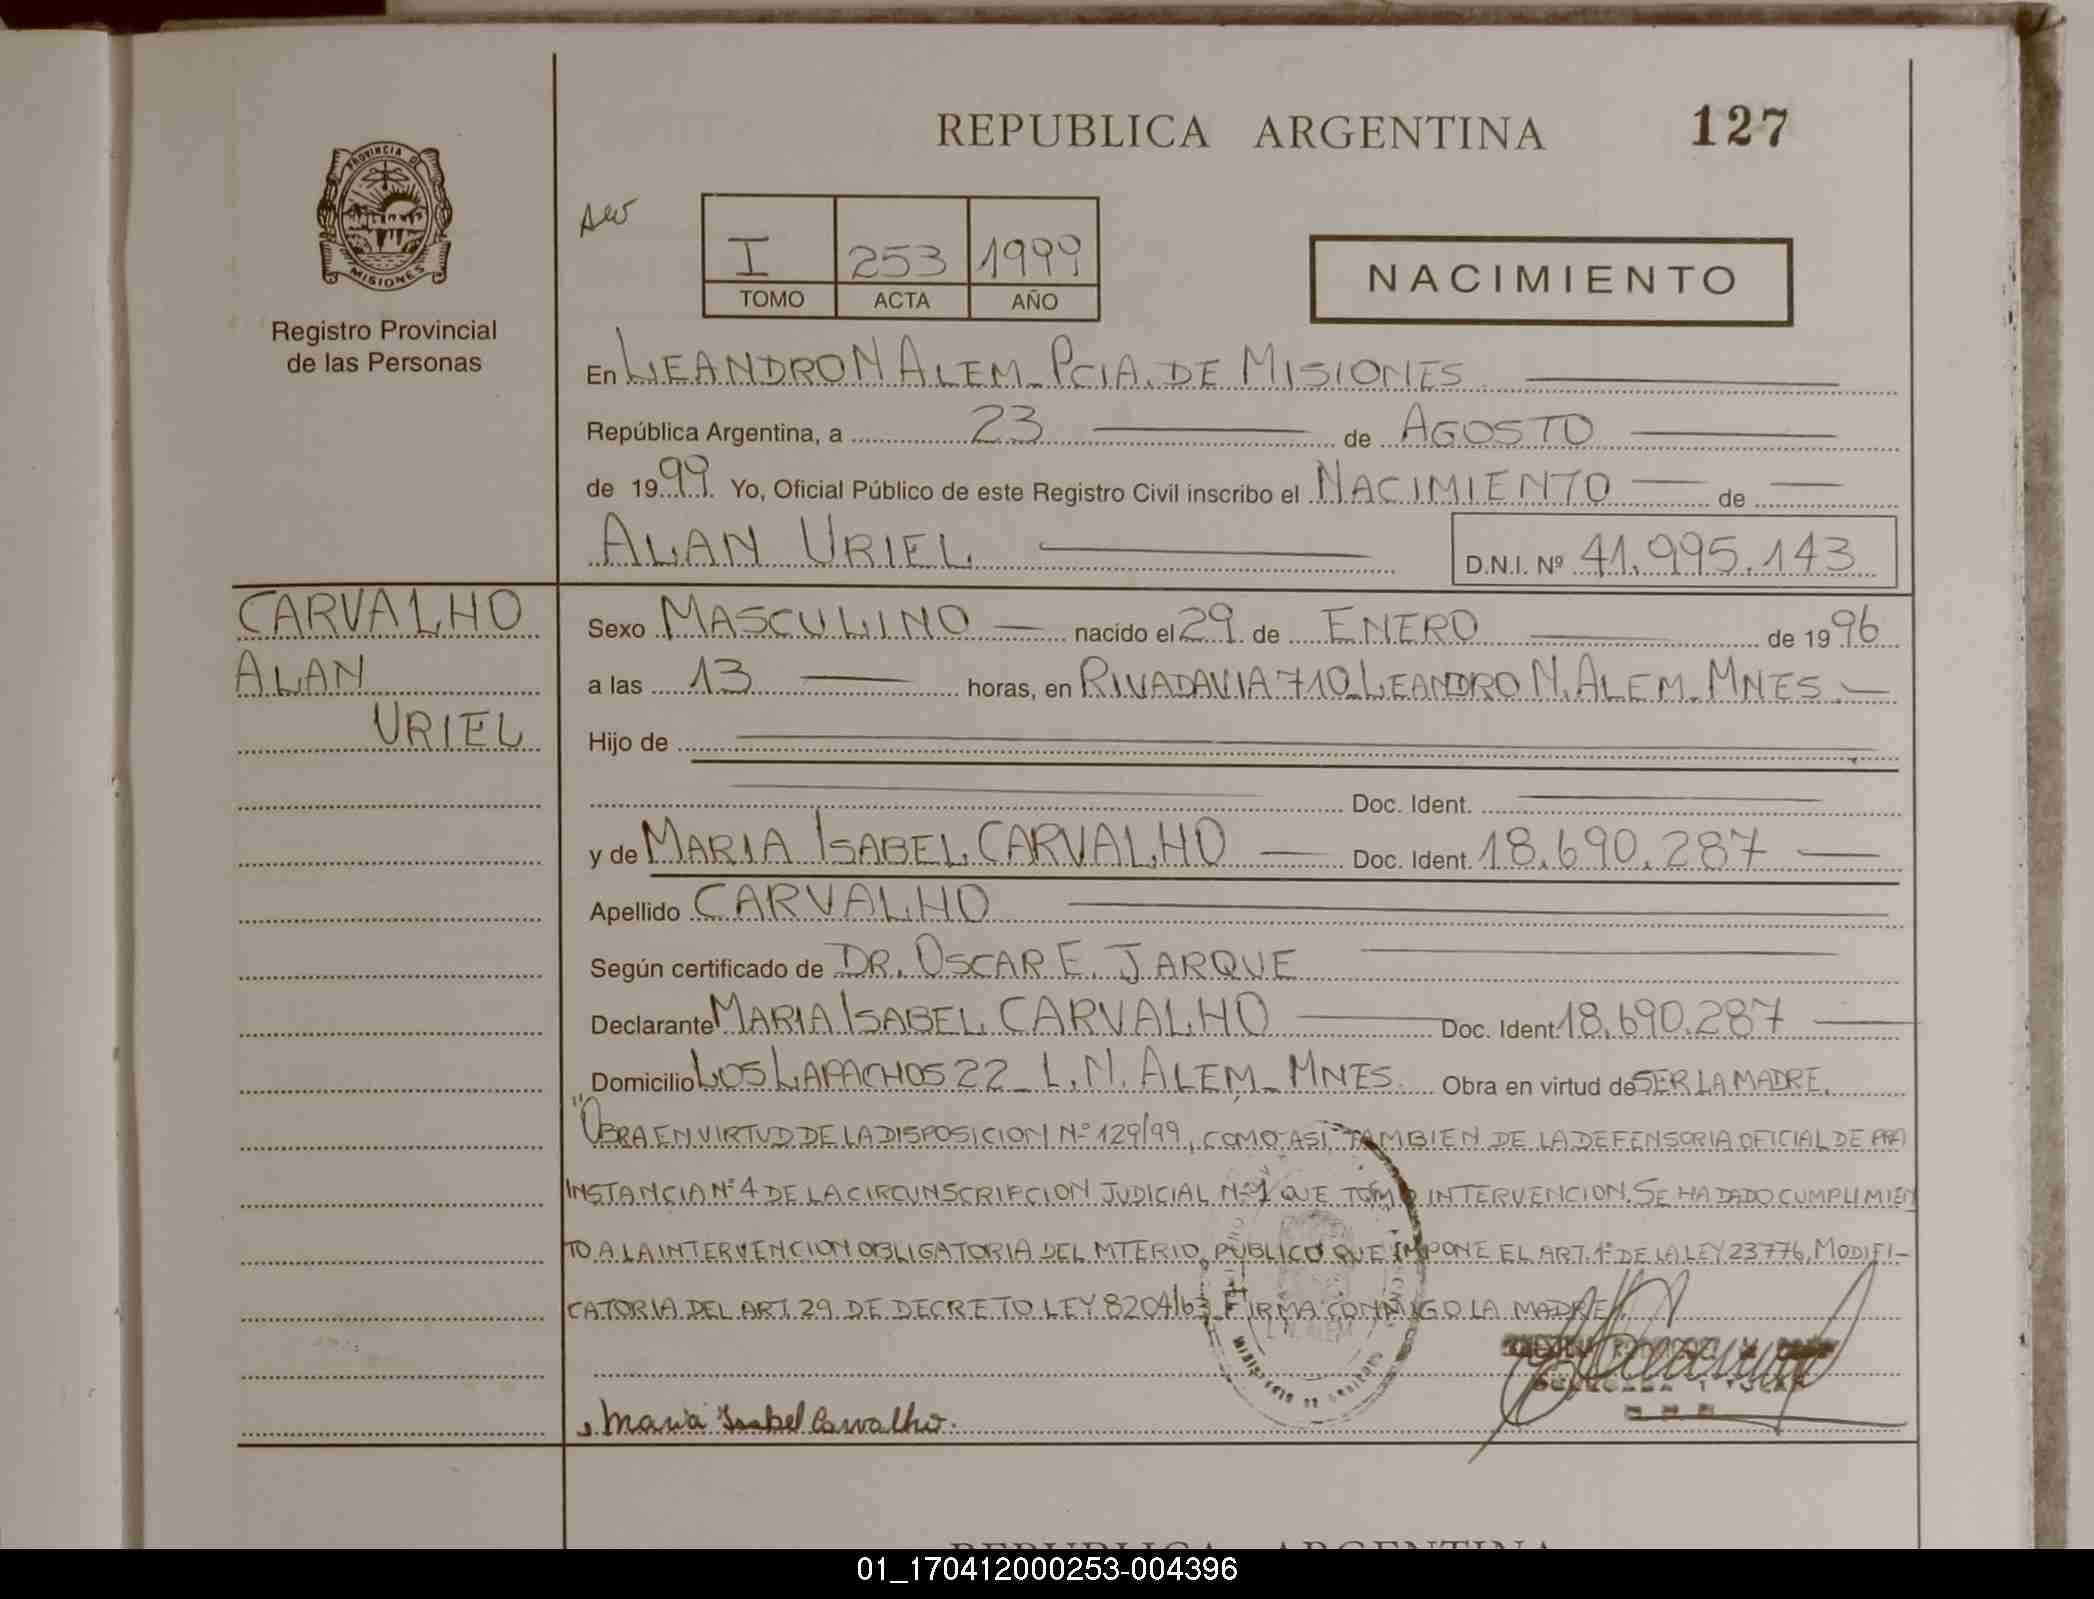 REPUBLICA ARGENTINA 127
PROVINCIA D
MISIONES
Registro Provincial
de las Personas
I 253 1999
TOMO ACTA AÑO
NACIMIENTO
En LEANDRO N ALEM - PCIA. DE MISIONES
República Argentina, a 23 de AGOSTO
de 1999. Yo, Oficial Público de este Registro Civil inscribo el NACIMIENTO de
ALAN URIEL D.N.I. Nº 41.995.143
CARVALHO
ALAN
URIEL
Sexo MASCULINO nacido el 29 de ENERO de 1996
a las 13 horas, en RIVADAVIA 710 - LEANDRO N. ALEM - MNES.
Hijo de
Doc. Ident.
y de MARIA ISABEL CARVALHO Doc. Ident. 18.690.287
Apellido CARVALHO
Según certificado de DR. OSCAR E. JARQUE
Declarante MARIA ISABEL CARVALHO Doc. Ident. 18.690.287
Domicilio LOS LAPACHOS 22 - L. N. ALEM - MNES. Obra en virtud de SER LA MADRE.
"OBRA EN VIRTUD DE LA DISPOSICION Nº 129/99, COMO ASI TAMBIEN DE LA DEFENSORIA OFICIAL DE PRA
INSTANCIA Nº 4 DE LA CIRCUNSCRIPCION JUDICIAL Nº 1 QUE TOMO INTERVENCION. SE HA DADO CUMPLIMIEN
TO A LA INTERVENCION OBLIGATORIA DEL MTERIO PUBLICO QUE IMPONE EL ART. 1º DE LA LEY 23776, MODIFI-
CATORIA DEL ART. 29 DE DECRETO LEY 8204/63. FIRMA CONMIGO LA MADRE
L. N. ALEM
Maria Isabel Carvalho.
REPUBLICA ARGENTINA
01_170412000253-004396